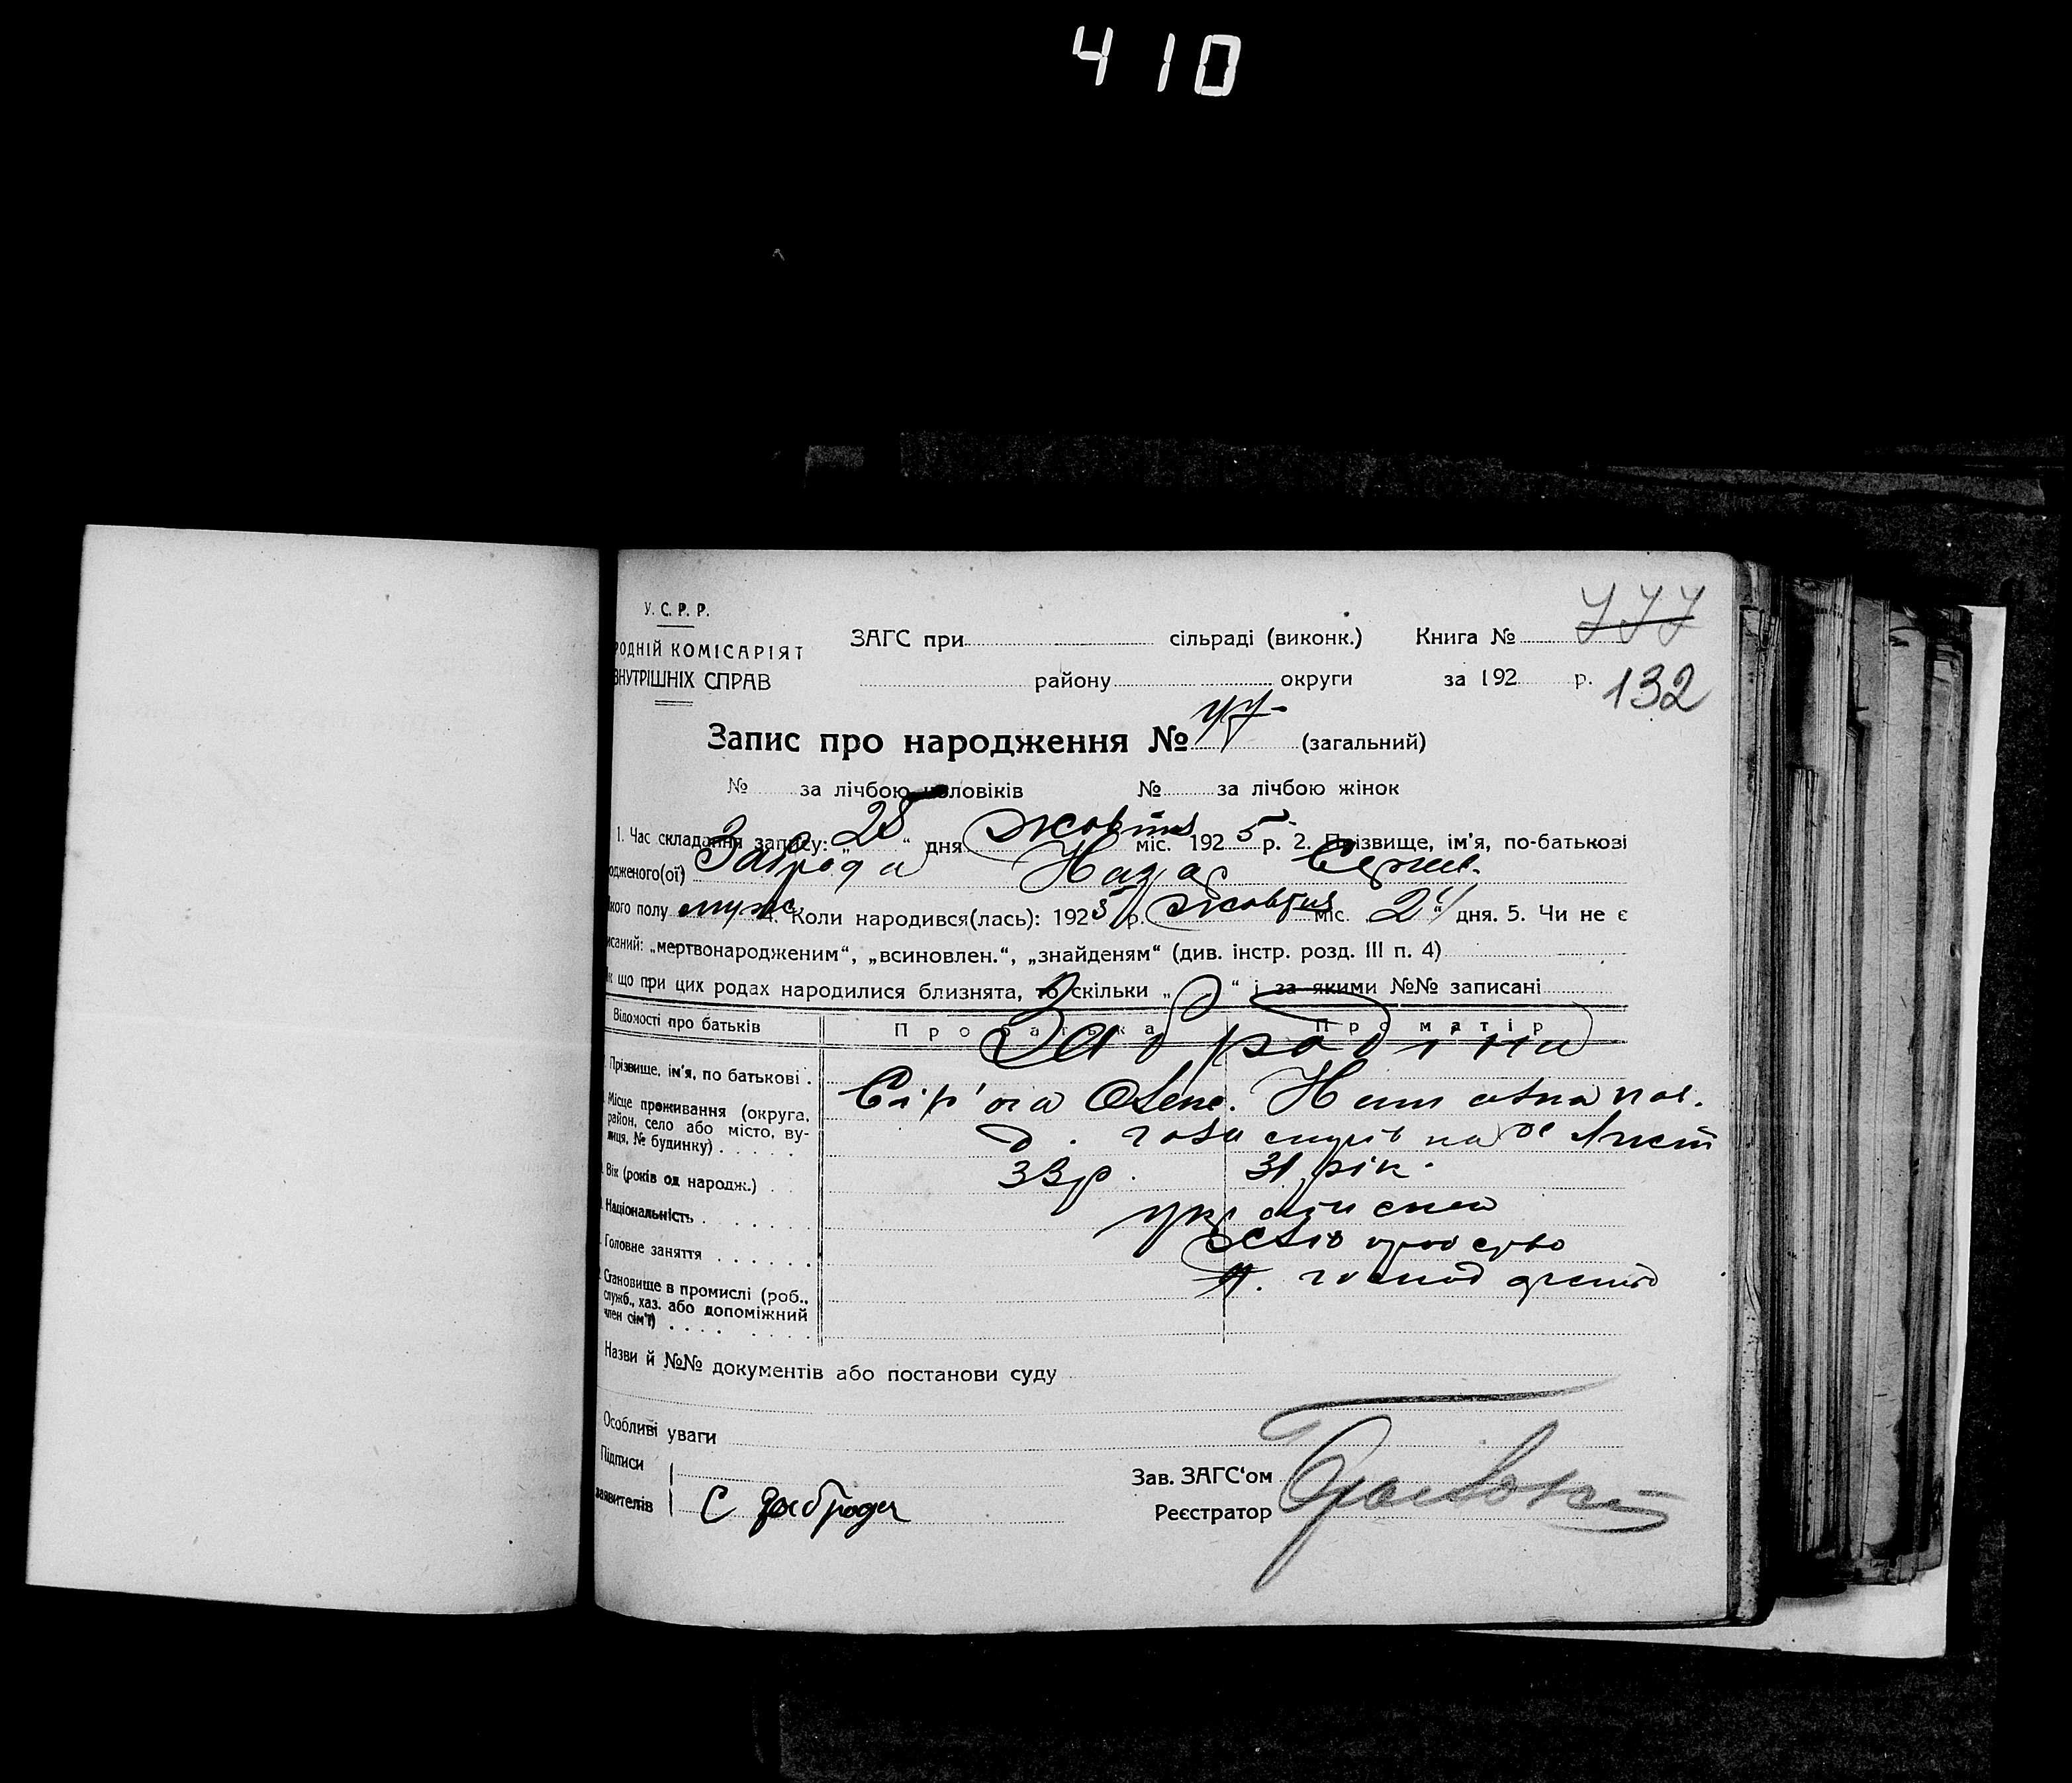 410
У. С. Р. Р.
РОДНІЙ КОМІСАРІЯТ
ВНУТРІШНІХ СПРАВ
ЗАГС при сільраді (виконк.) Книга №
району округи за 192 р. 132
Запис про народження № 47 (загальний)
№ за лічбою чоловіків № за лічбою жінок
1. Час складання запису: „28“ дня жовтня міс. 1925 р. 2. Прізвище, ім'я, по-батькові
одженого(ої) Заброда Назар Сергіє.
кого полу муж. 4. Коли народився(лась): 1925 р. жовтня міс. „ 2 “ дня. 5. Чи не є
исаний: „мертвонародженим“, „всиновлен.“, „знайденям“ (див. інстр. розд. III п. 4)
к що при цих родах народилися близнята, то скільки „ “ і за якими №№ записані
Відомості про батьків Про батька Про матір
Прізвище, ім'я, по батькові
Місце проживання (округа, район, село або місто, вулиця, № будинку)
Вік (років од народж.) 33 р. 31 рік.
Національність українська
Головне заняття хліборобство
Становище в промислі (роб., служб., хаз. або допоміжний член сім'ї)
Назви й №№ документів або постанови суду
Особливі уваги
Підписи
заявителів С Заброда
Зав. ЗАГС'ом
Реєстратор